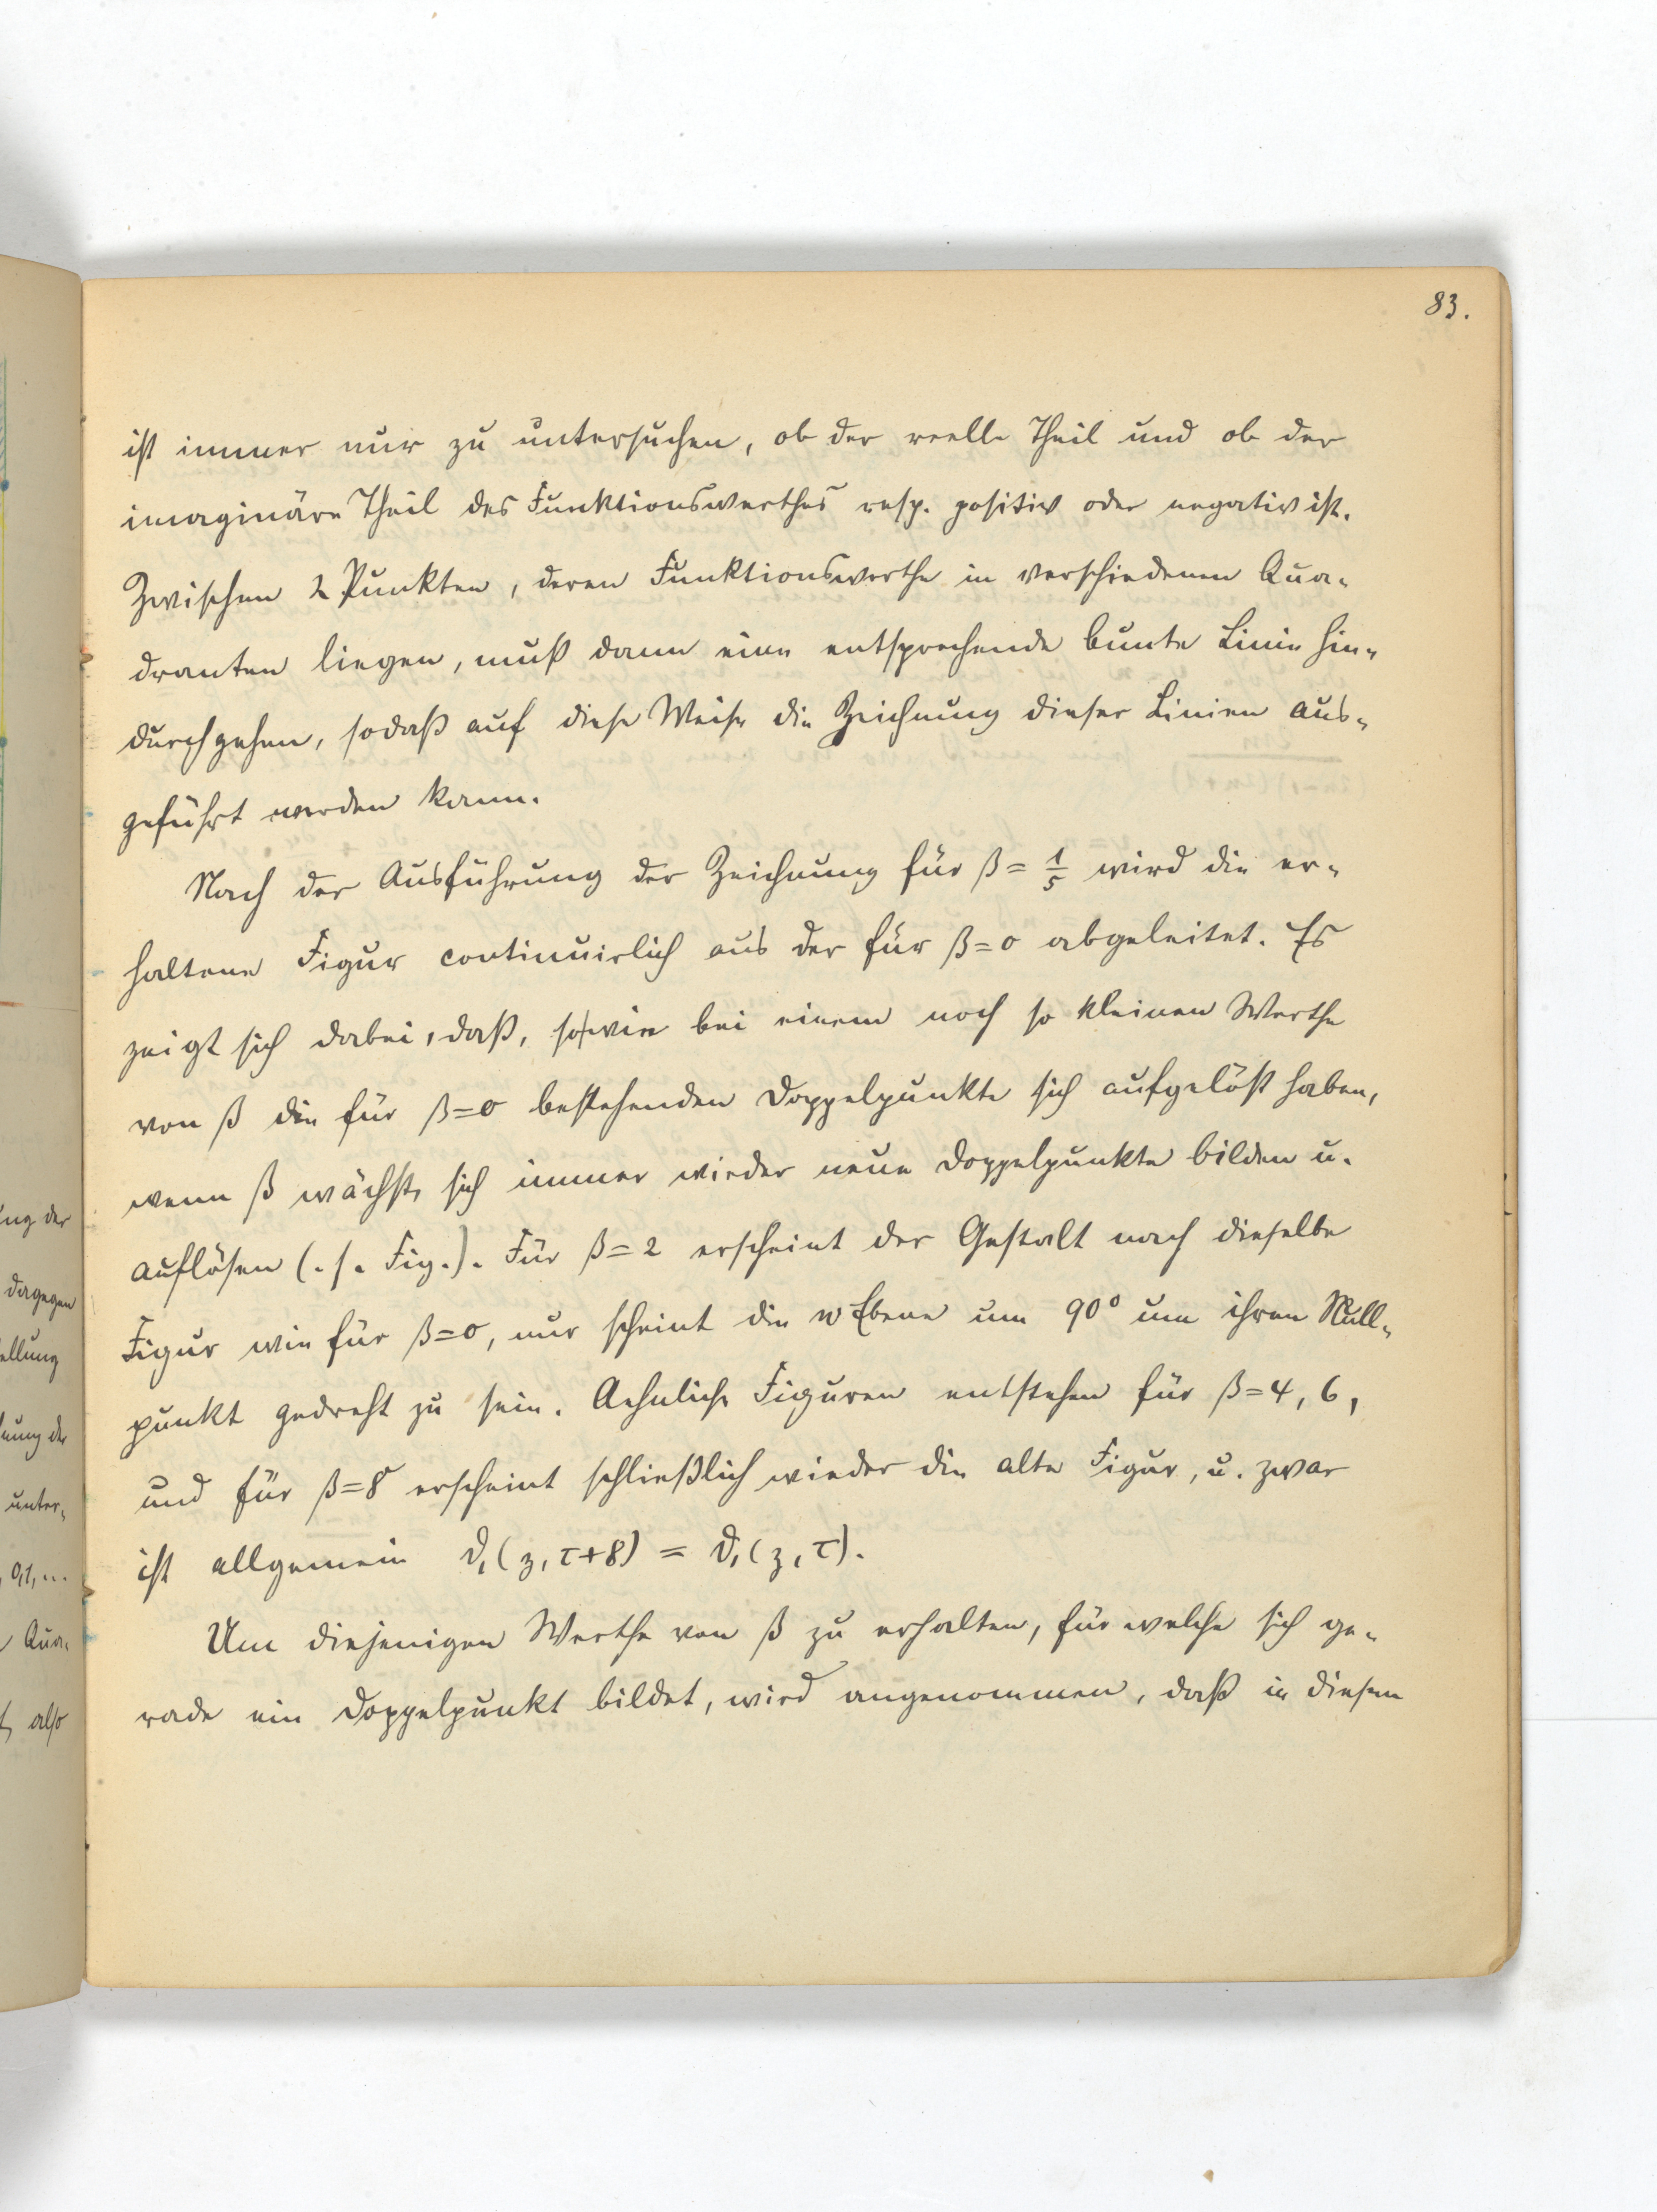 83.
ist immer nur zu untersuchen, ob der reelle Theil und ob der
imaginäre Theil des Funktionswerthes resp. positiv oder negativ ist.
Zwischen 2 Punkten, deren Funktionswerthe in verschiedenen Qua-
dranten liegen, muß dann eine entsprechende bunte Linie hin-
durchgehen, sodaß auf diese Weise die Zeichnung dieser Linien aus-
geführt werden kann.
Nach der Ausführung der Zeichnung für β = 1/5 wird die er-
haltene Figur continuirlich aus der für β=0 abgeleitet. Es
zeigt sich dabei, daß, sowie bei einem noch so kleinen Werthe
von β die für β=0 bestehenden Doppelpunkte sich aufgelöst haben,
wenn β wächst, sich immer wieder neue Doppelpunkte bilden u.
auflösen (. s. Fig.). Für β=2 erscheint der Gestalt nach dieselbe
Figur wie für β=0, nur scheint die w Ebene um 90° um ihren Null-
punkt gedreht zu sein. Aehnliche Figuren entstehen für β=4, 6,
und für β=8 erscheint schließlich wieder die alte Figur, u. zwar
ist allgemein ϑ₁(z, τ+8) = ϑ₁(z, τ).
Um diejenigen Werthe von β zu erhalten, für welche sich ge-
rade ein Doppelpunkt bildet, wird angenommen, daß in diesem
ng der
dagegen
ellung
nung der
unter-
0,1, ...
Qua-
also